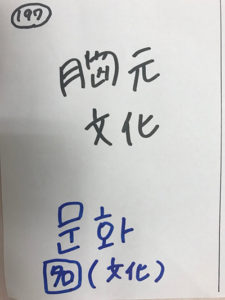 197
胸元
文化
문화
90 (文化)